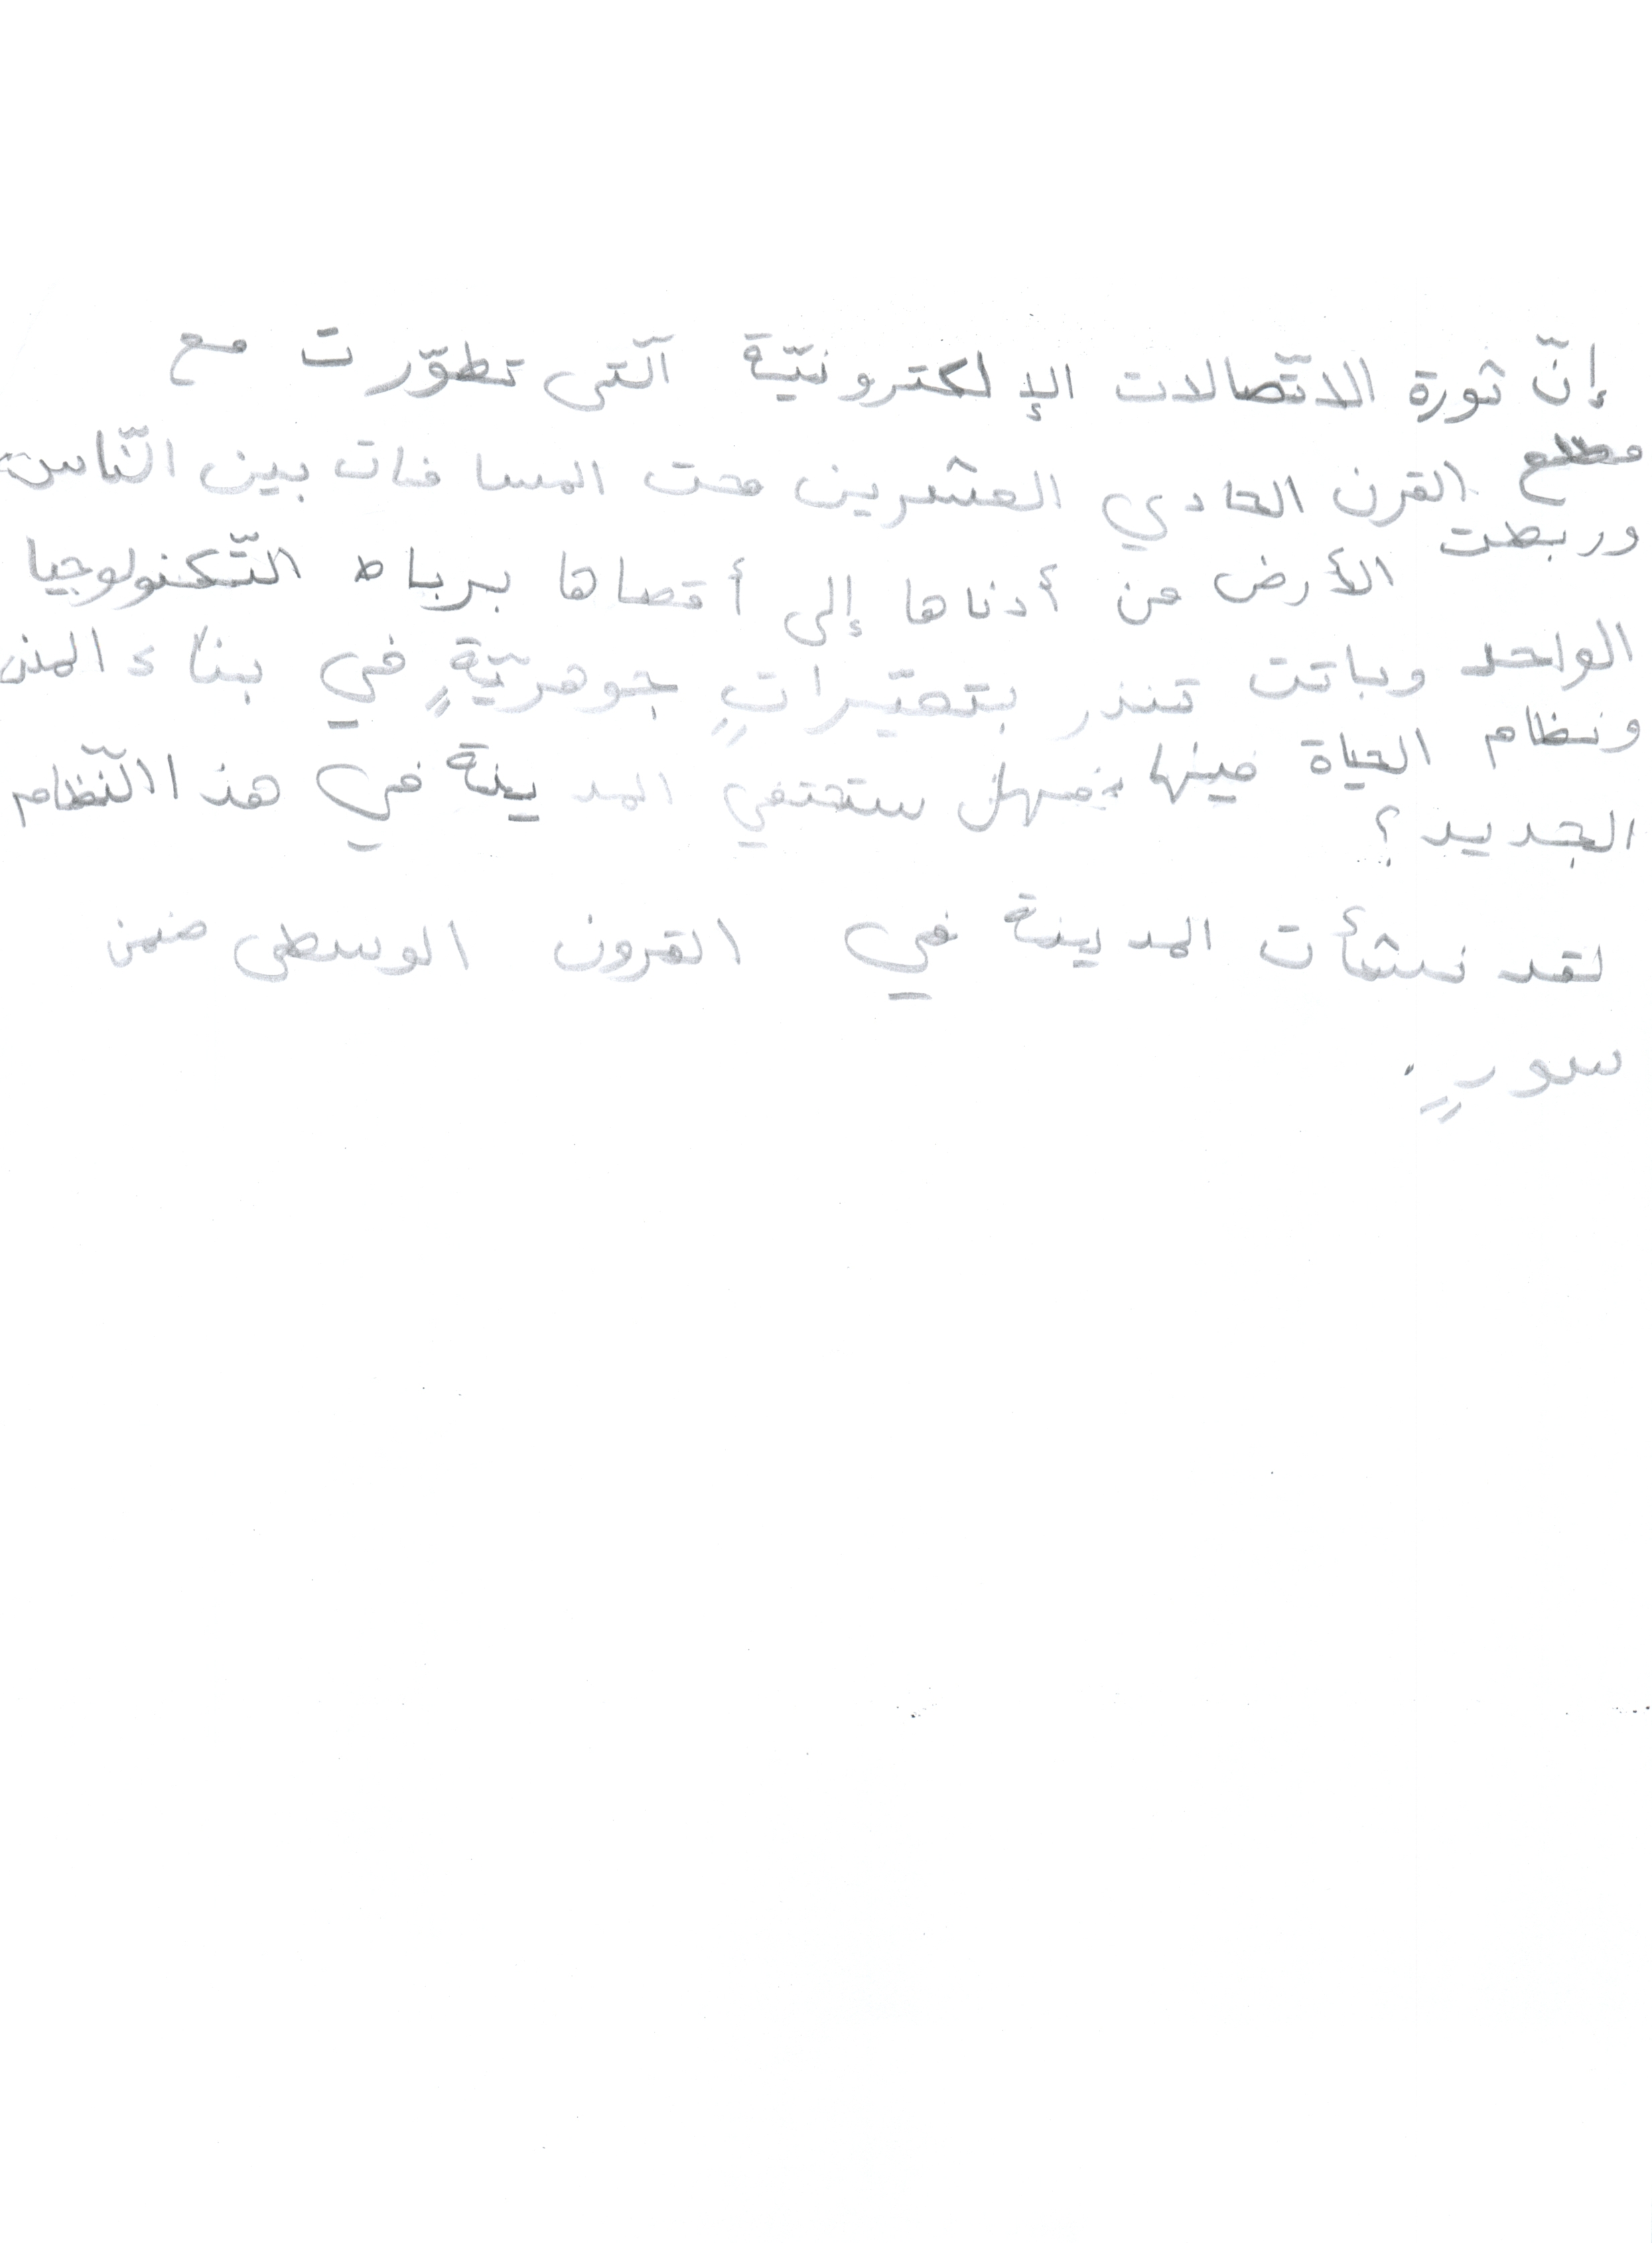 إنّ ثورة الاتّصالات الإلكترونيّة الّتى تطوّرت مع
مطلع القرن الحادي العشرين محت المسافات بين النّاس
وربطت الأرض من أدناها إلى أقصاها برباط التّكنولوجيا
الواحد وباتت تنذر بتغيّراتٍ جوهريّةٍ في بناء المدن
ونظام الحياة فيها فهل ستختفي المدينة في هذا النّظام
الجديد؟
لقد نشأت المدينة في القرون الوسطى ضمن
سورٍ.